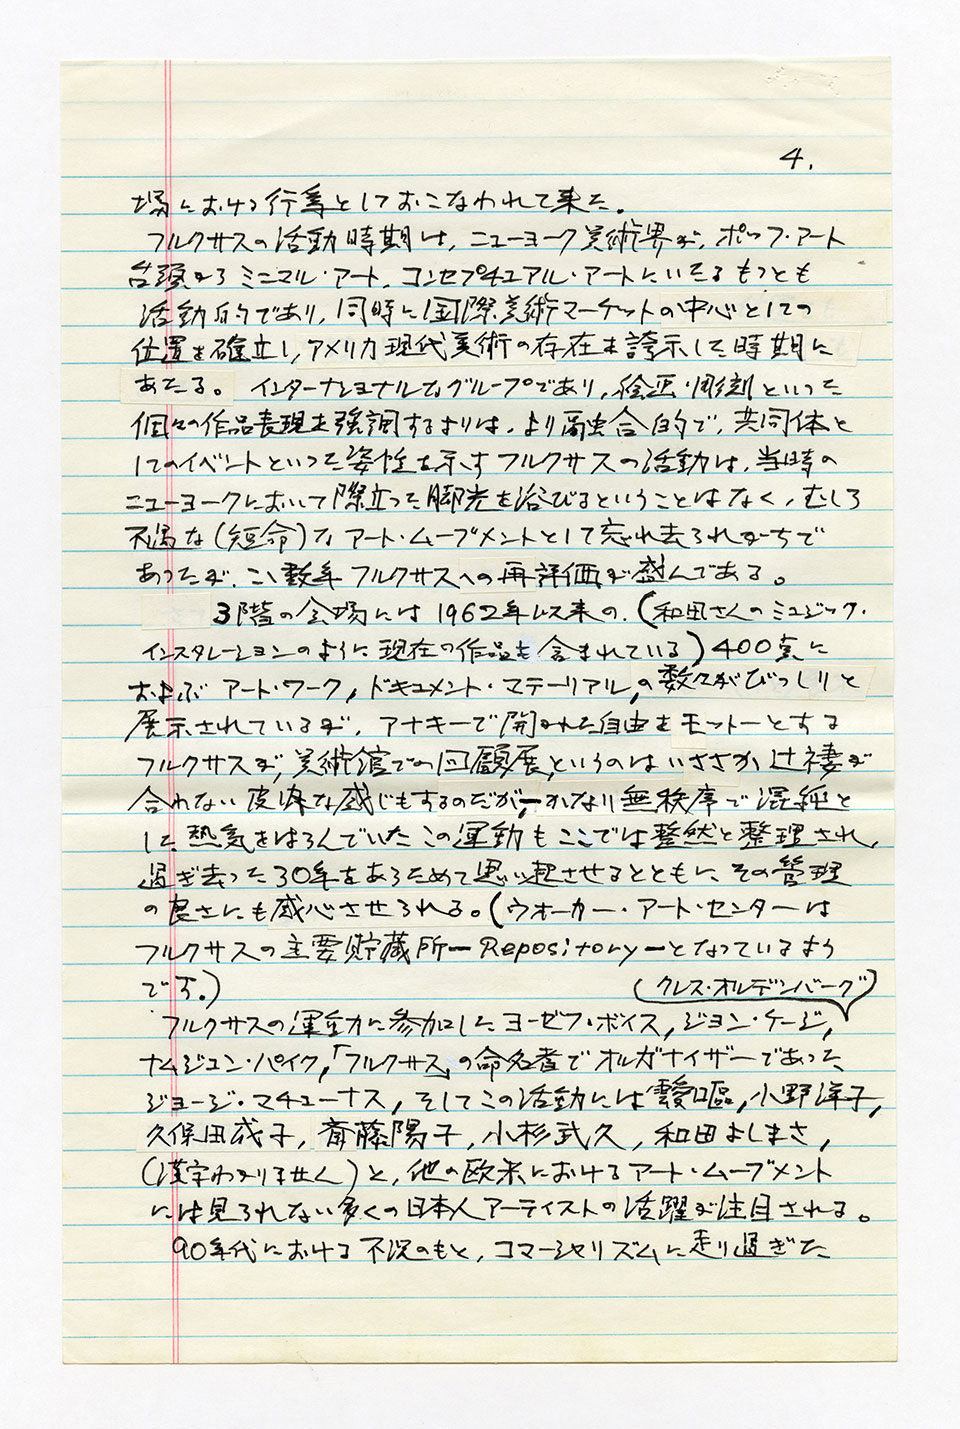 4.
場における行為としておこなわれて来た。
フルクサスの活動時期は、ニューヨーク美術界が、ポップ・アート
台頭からミニマル・アート、コンセプチュアル・アートにいたるもっとも
活動的であり、同時に国際美術マーケットの中心としての
位置を確立し、アメリカ現代美術の存在を誇示した時期に
あたる。インターナショナルなグループであり、絵画・彫刻といった
個々の作品表現を強調するよりは、より融合的で、共同体と
してのイベントといった姿性を示すフルクサスの活動は、当時の
ニューヨークにおいて際立った脚光を浴びるということはなく、むしろ
不遇な(短命)なアート・ムーブメントとして忘れ去られがちで
あったが、ここ数年フルクサスへの再評価が盛んである。
3階の会場には1962年以来の、(和田さんのミュジック・
インスタレーションのように現在の作品も含まれている)400点に
およぶアート・ワーク,ドキュメント・マテーリアル,の数々がびっしりと
展示されているが、アナキーで開かれた自由をモットーとする
フルクサスが、美術館での回顧展、というのはいささか辻褄が
合わない皮肉な感じもするのだが、かなり無秩序で混純と
した熱気をはらんでいたこの運動もここでは整然と整理され、
過ぎ去った30年をあらためて思い起させるとともにその管理
の良さにも感心させられる。(ウオーカー・アート・センターは
フルクサスの主要貯蔵所ーRepositoryーとなっているよう
です。)
(クレス・オルデンバーグ)
フルクサスの運動に参加したヨーゼフ・ボイス,ジョン・ケージ,
ナムジュン・パイク,「フルクサス」の命名者でオルガナイザーであった
ジョージ・マチューナス,そしてこの活動には靉嘔,小野洋子,
久保田成子,斎藤陽子,小杉武久,和田よしまさ,
(漢字わかりません)と,他の欧米におけるアート・ムーブメント
には見られない多くの日本人アーティストの活躍が注目される。
90年代における不況のもと,コマーシャリズムに走り過ぎた